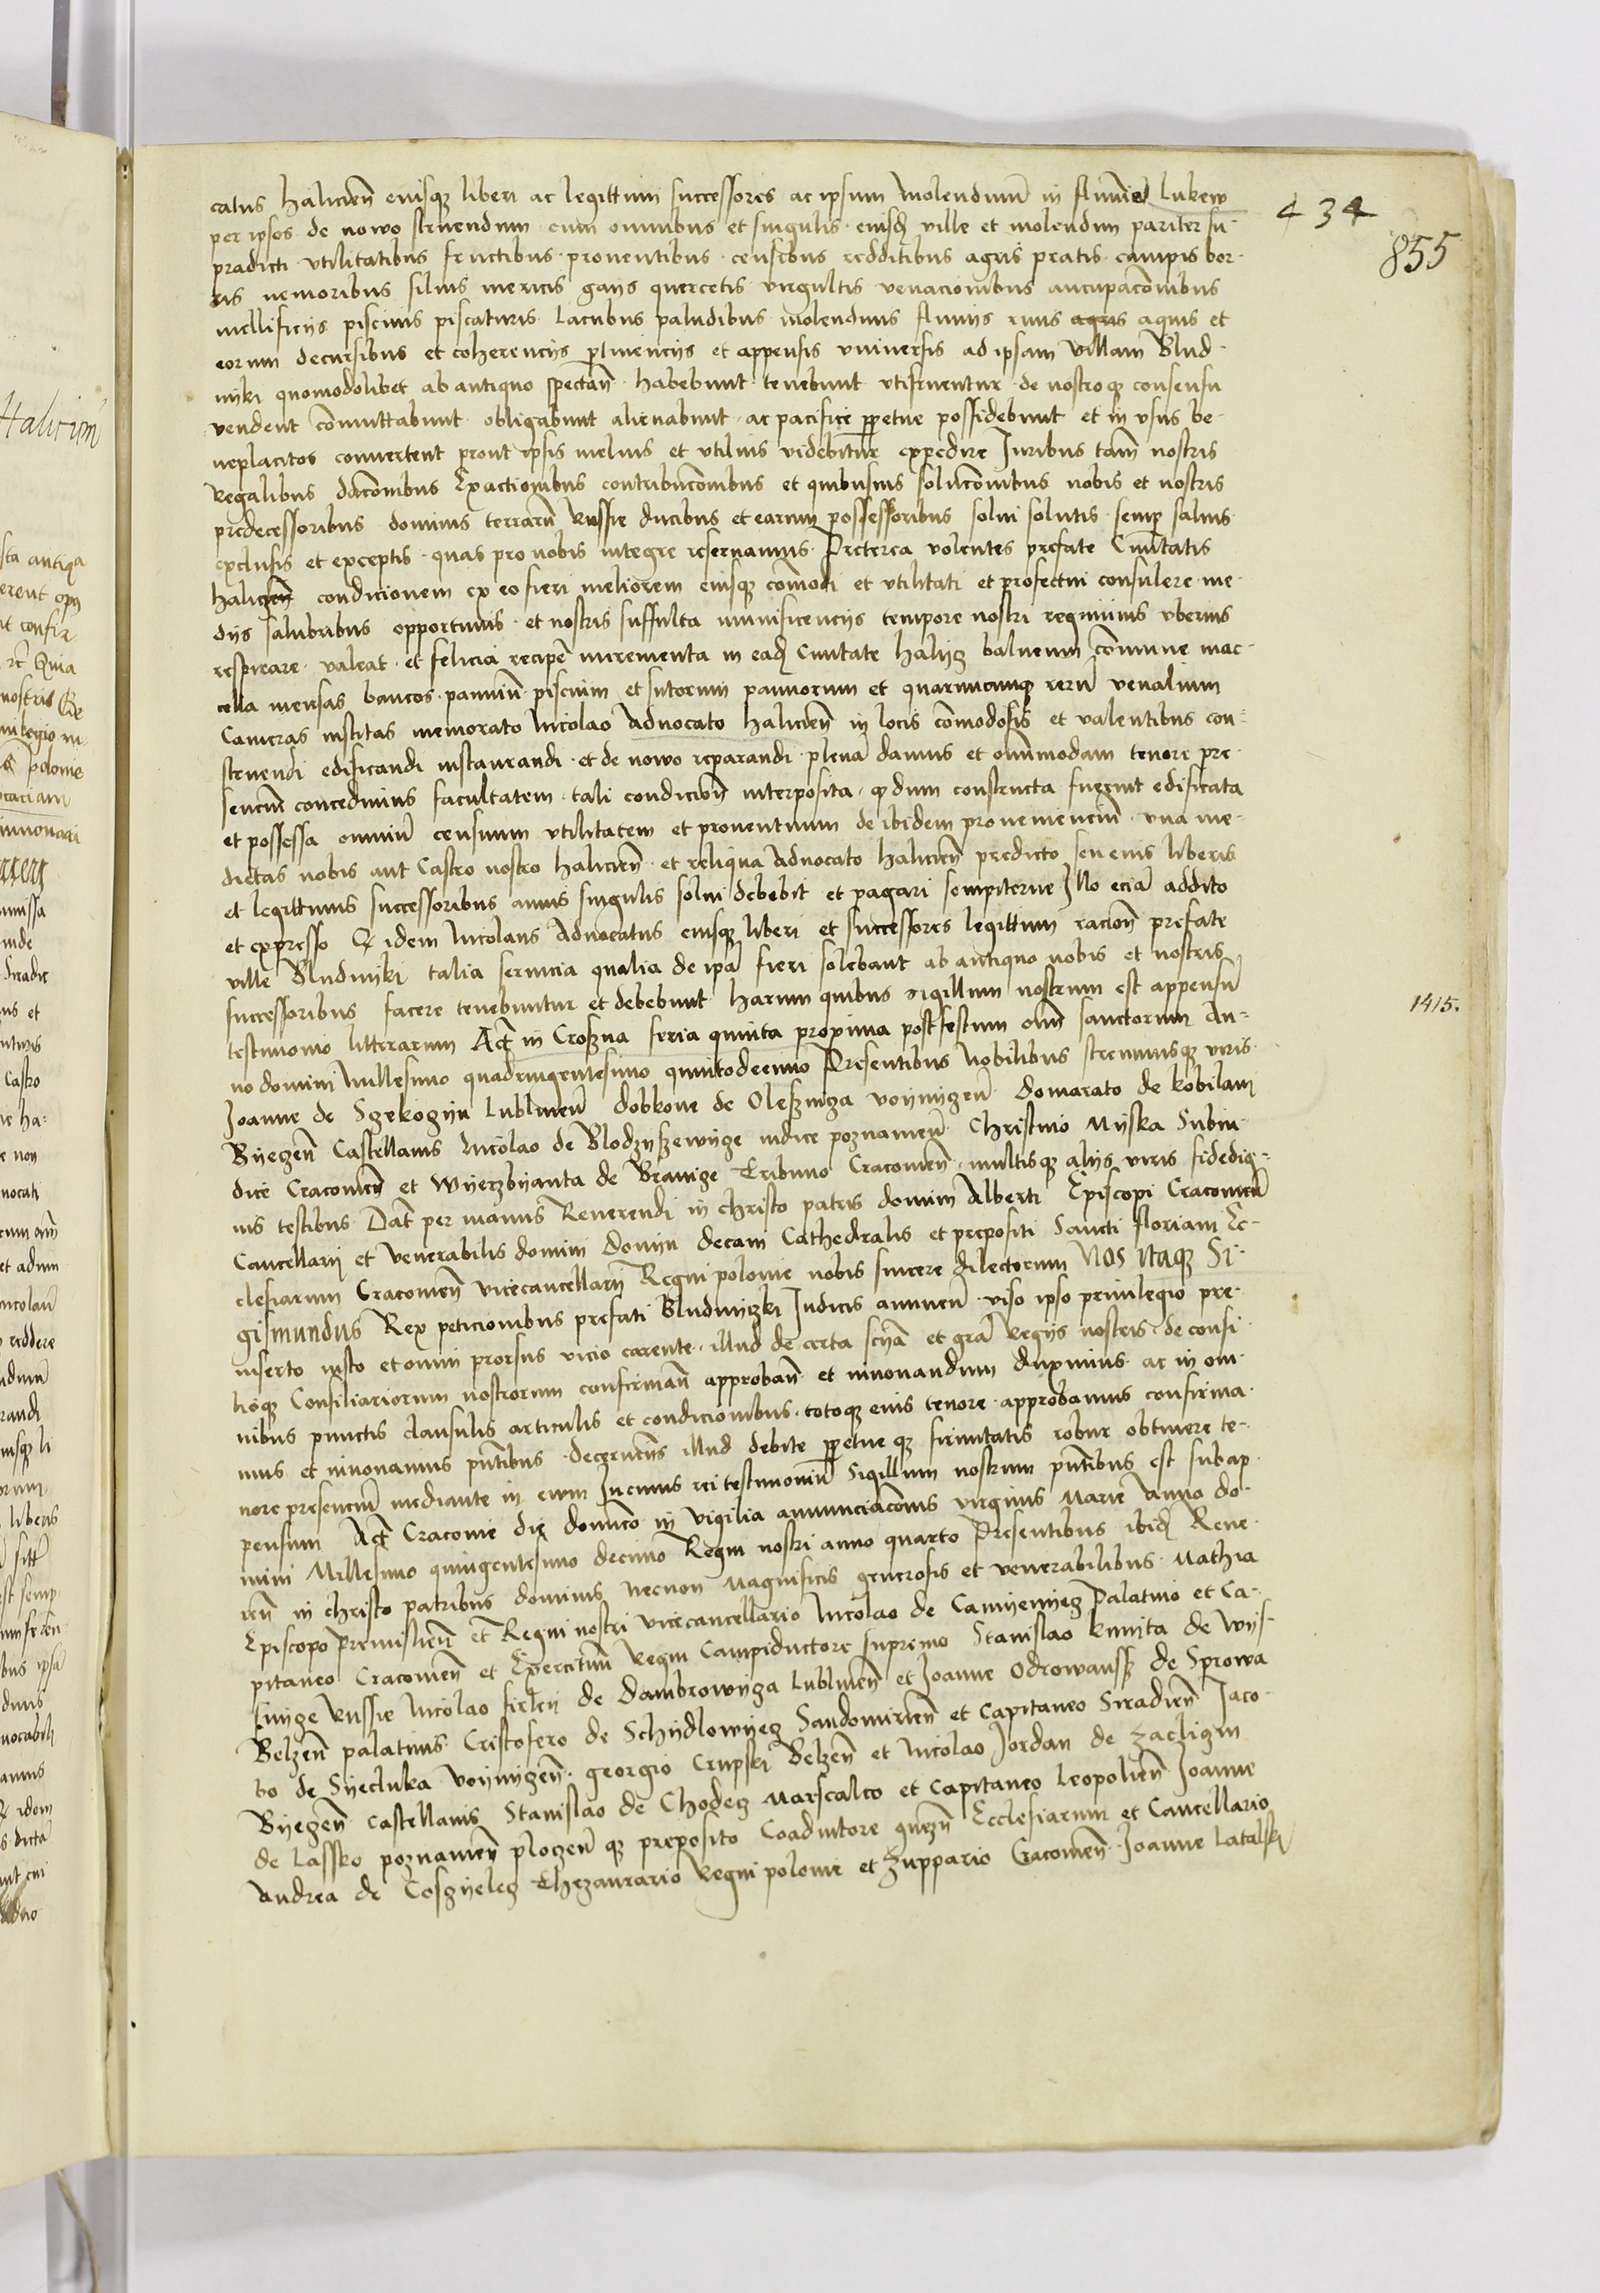 434
855
catus halicien̄ eiusq liberi ac legittimi successores ac ipsum molendinū in fluuio Lukew
per ipsos de nowo struendum cum omnibus et singulis eiusd ville et molendini pariter su-
pradicti vtilitatibus fructibus prouentibus censibus redditibus agris pratis campis bor-
ris nemoribus siluis mericis gays quercetis virgultis venacionibus aucupac̄onibus
mellificijs piscinis piscaturis lacubus paludibus molendinis fluuijs riuis agris aquis et
eorum decursibus et coherencijs p̄tinencijs et appensis vniuersis ad ipsam villam Blud-
niki quomodolibet ab antiquo spectan̄ habebunt tenebunt vtifruentur de nostroq consensu
vendent cōmuttabunt obligabunt alienabunt ac pacifice ꝑpetue possidebunt et in vsus be-
neplacitos conuertent prout ipsis melius et vtilius videbitur expedire Iuribus tam̄ nostris
regalibus dac̄onibus Exactionibus contribuc̄onibus et quibusuis soluc̄onibus nobis et nostris
predecessoribus dominis terrarū Russie ducibus et earum possessoribus solui solutis semp saluis
exclusis et exceptis quas pro nobis integre reseruamus Preterea volentes prefate Ciuitatis
halicien̄ condicionem ex eo fieri meliorem eiusq cōmodi et vtilitati et profectui consulere me-
dijs salubribus opportunis et nostris suffulta munificencijs tempore nostri regiminis vberius
respirare valeat et felicia recipē incrementa in ead Ciuitate halijcz balneum cōmune mac-
cella mensas bancos pannim̄ piscium et sutorum pannorum et quarumcunq rerū venalium
Cameras institas memorato Nicolao Aduocato halicien̄ in locis cōmodosis et valentibus con-
struendi edificandi instaurandi et de nowo reparandi plenā damus et om̄imodam tenore pre-
sencīu concedimus facultatem tali condicion̄ interposita q dum constructa fuerint edificata
et possessa omniū censuum vtilitatem et prouentuum de ibidem proueniencīu vna me-
dietas nobis aut Castro nostro halicien̄ et reliqua Aduocato halicien̄ predicto seu eius liberis
et legittimis successoribus annis singulis solui debebit et pagari sempiterne Illo eciā addito
et expresso Q idem Nicolaus Aduocatus eiusq liberi et successores legittimi racion̄ prefate
ville Bludnijki talia seruicia qualia de ip̄a fieri solebant ab antiquo nobis et nostris
successoribus facere tenebuntur et debebunt harum quibus sigillum nostrum est appensū
testimonio litterarum Act̄ in Croszna feria quinta proxima post festum om̄i sanctorum An-
1415.
no domini millesimo quadringentesimo quintodecimo Presentibus Nobilibus strennuisq viris
Joanne de Szekoczijn Lublinen̄ dobkone de Oleszniza voijnijczen̄ domarato de kobilani
Bijeczen̄ Castellanis Nicolao de Blodzyszewijcze iudice poznanien̄ Christino Mijska Subiu-
dice Cracouien̄ et Wijerzbijanta de Branicze Tribuno Cracouien̄ multisq alijs viris fidedig-
nis testibus Dat̄ per manus Reuerendi in christo patris domini Alberti Episcopi Cracouien̄
Cancellarij et venerabilis domini Donijn decani Cathedralis et prepositi Sancti floriani Ec-
clesiarum Cracouien̄ vicecancellarij Regni polonie nobis sincere dilectorum Nos Itaq Si-
gismundus Rex peticionibus prefati Bludnijczki Iudicis annuen̄ viso ipso priuilegio pre-
inserto iusto et omni prorsus vicio carente illud de certa scīā et grā Regijs nostris de consi
lioq Consiliariorum nostrorum confirman̄ approban̄ et innouandum duximus ac in om-
nibus punctis clausulis articulis et condicionibus totoq eius tenore approbamus confirma-
mus et innouamus pn̄tibus decernen̄s illud debite ꝑpetueq firmitatis robur obtinere te-
nore presencīu mediante in ewm Incuius rei testimoniū Sigillum nostrum pn̄tibus est subap-
pensum Act̄ Cracouie die dominico in Vigilia annunciac̄onis virginis Marie Anno do-
mini Millesimo quingentesimo decimo Regni nostri anno quarto Presentibus ibid Reue-
ren̄ in christo patribus dominis necnon Magnificis generosis et venerabilibus Mathia
Episcopo premislien̄ et Regni nostri vicecancellario Nicolao de Camijenijecz Palatino et Ca-
pitaneo Cracouien̄ et Exercituū Regni Campiductore supremo Stanislao kmita de Wijs-
snijcze Russie Nicolao firleij de Dambrowijcza Lublinen̄ et Joanne Odrowanssz de Sprowa
Belzen̄ palatinis Cristofero de Schijdlowijecz Sandomirien̄ et Capitaneo Siradien̄ Jaco-
bo de Sijecluka voijnijczen̄ georgio Crupski Belzen̄ et Nicolao Jordan de Zacliczin
Bijeczen̄ Castellanis Stanislao de Chodecz Marscalco et Capitaneo Leopolien̄ Joanne
de Lassko poznanien̄ plocen̄q preposito Coadiutore gnezn̄ Ecclesiarum et Cancellario
Andrea de Cosczijelecz Thezaurario Regni polonie et Zuppario Cracouien̄ Joanne Latalski